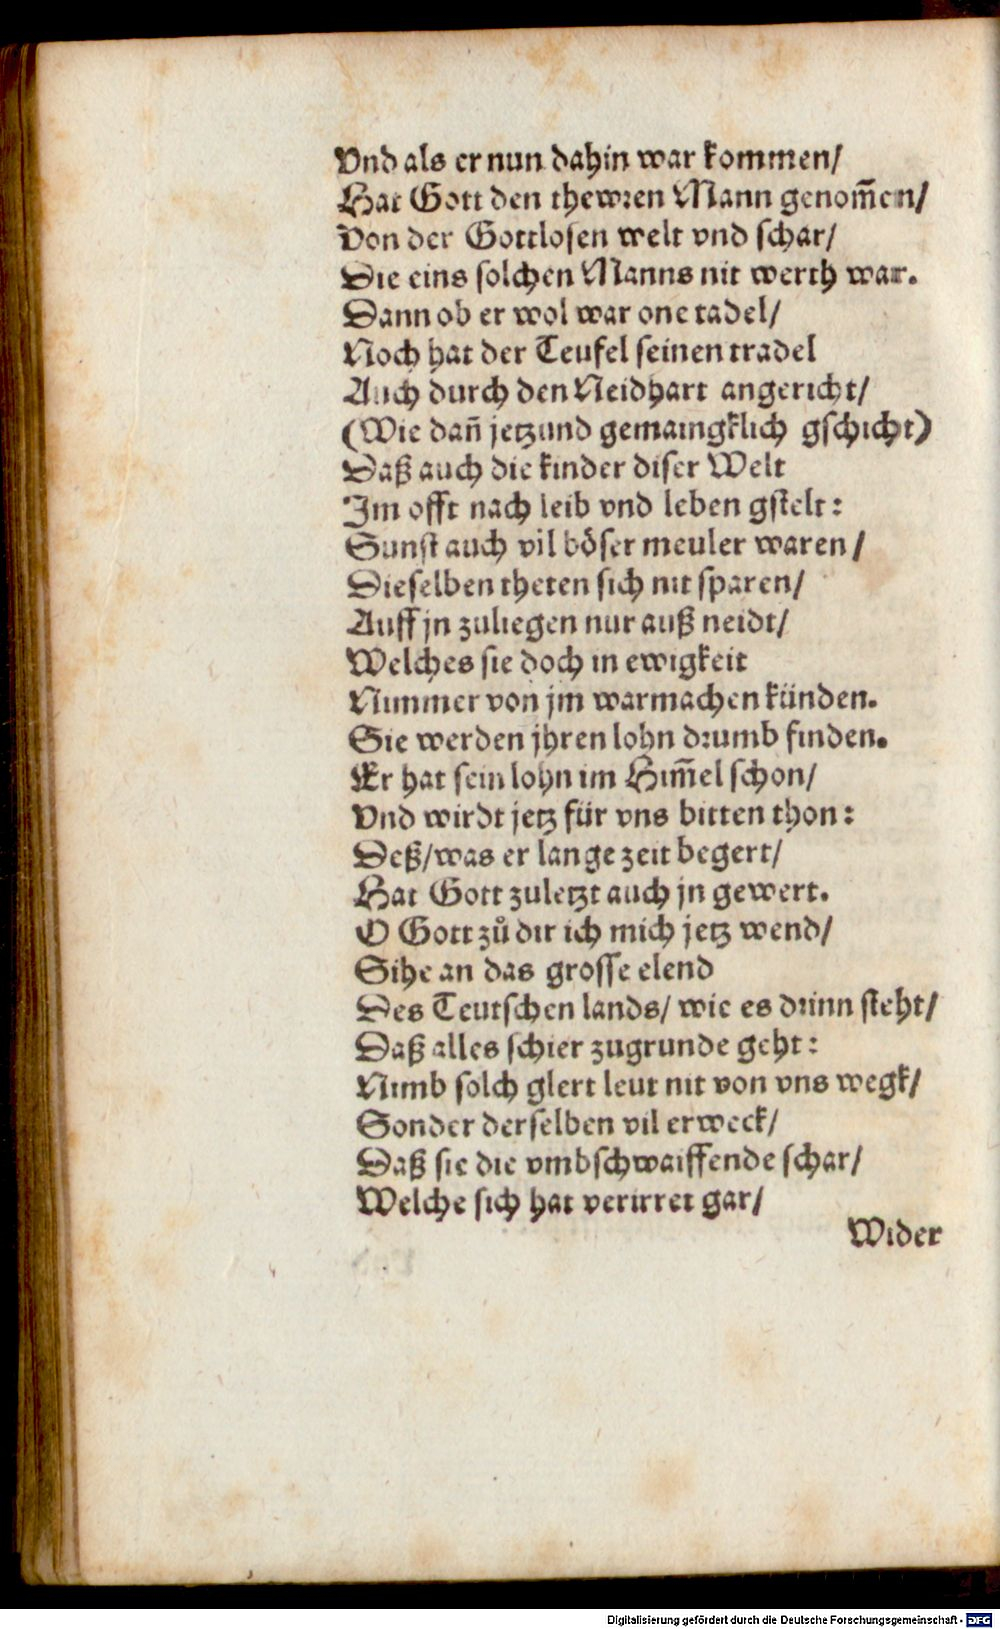 Vnd als er nun dahin war kommen/
Hat Gott den thewren Mann genom̃en/
Von der Gottlosen welt vnd schar/
Die eins solchen Manns nit werth war.
Dann ob er wol war one tadel/
Noch hat der Teufel seinen tradel
Auch durch den Neidhart angericht/
(Wie dañ jetzund gemaingklich gschicht)
Daß auch die kinder diser Welt
Im offt nach leib vnd leben gstelt:
Sunst auch vil böser meuler waren/
Dieselben theten sich nit sparen/
Auff jn zuliegen nur auß neidt/
Welches sie doch in ewigkeit
Nimmer von jm warmachen künden.
Sie werden jhren lohn drumb finden.
Er hat sein lohn im Him̃el schon/
Vnd wirdt jetz für vns bitten thon:
Deß/was er lange zeit begert/
Hat Gott zuletzt auch jn gewert.
O Gott zů dir ich mich jetz wend/
Sihe an das grosse elend
Des Teutschen lands/ wie es drinn steht/
Daß alles schier zugrunde geht:
Nimb solch glert leut nit von vns wegk/
Sonder derselben vil erweck/
Daß sie die vmbschwaiffende schar/
Welche sich hat verirret gar/
Wider
Digitalisierung gefördert durch die Deutsche Forschungsgemeinschaft - DFG